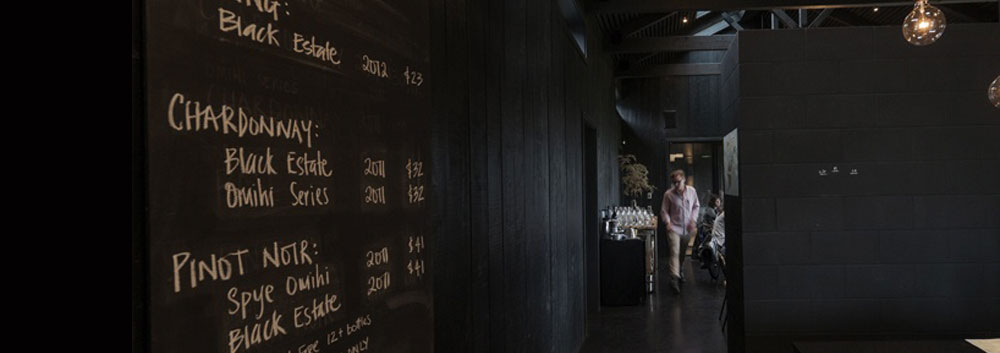 NG:
Black Estate 2012 $23
CHARDONNAY:
Black Estate 2011 $32
Omihi Series 2011 $32
PINOT NOIR:
Spye Omihi 2011 $41
Black Estate 2011 $41
Free 12+ bottles
ONLY